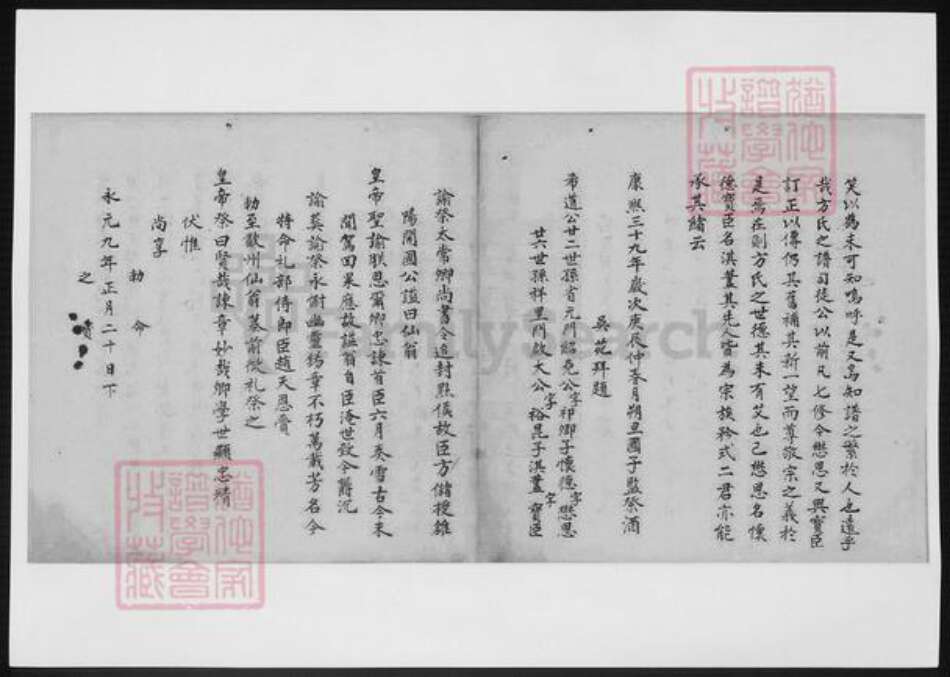 笑以為未可知嗚呼是又烏知譜之繁於人也遠乎
哉方氏之譜司徒公以前凡七修今懋恩又與寶臣
訂正以傳仍其舊補其新一望而尊敬宗之義於
是焉在則方氏之世德其未有艾也已懋恩名懷
德寶臣名淇蓋其先人皆為宗族矜式二君亦能
承其緒云
康熙三十九年歲次庚辰仲春月朔旦國子監祭酒
吳苑拜題
希道公廿二世孫首元門紹堯公字祁卿子懷德字懋恩
廿六世孫祥里門啟大公字裕昆子淇蓋字寶臣
諭祭太常卿尚書令追封黟侯故臣方儲授雒
陽開國公謚曰仙翁
皇帝聖諭朕思爾卿忠諫首臣六月奏雪古今未
聞駕回果應故謚翁自臣淹世敘令爵沉
諭英諭祭永耐幽靈萄章不朽萬載芳名今
特命礼部侍郎臣趙天恩賫
勅至歙州仙翁墓前傚礼祭之
皇帝祭曰賢哉諫章妙哉卿學世顯忠靖
伏惟
尚享
永元九年正月二十日下
勅命
之寶
猶他家譜學會收藏
FamilySearch
猶他家譜學會收藏